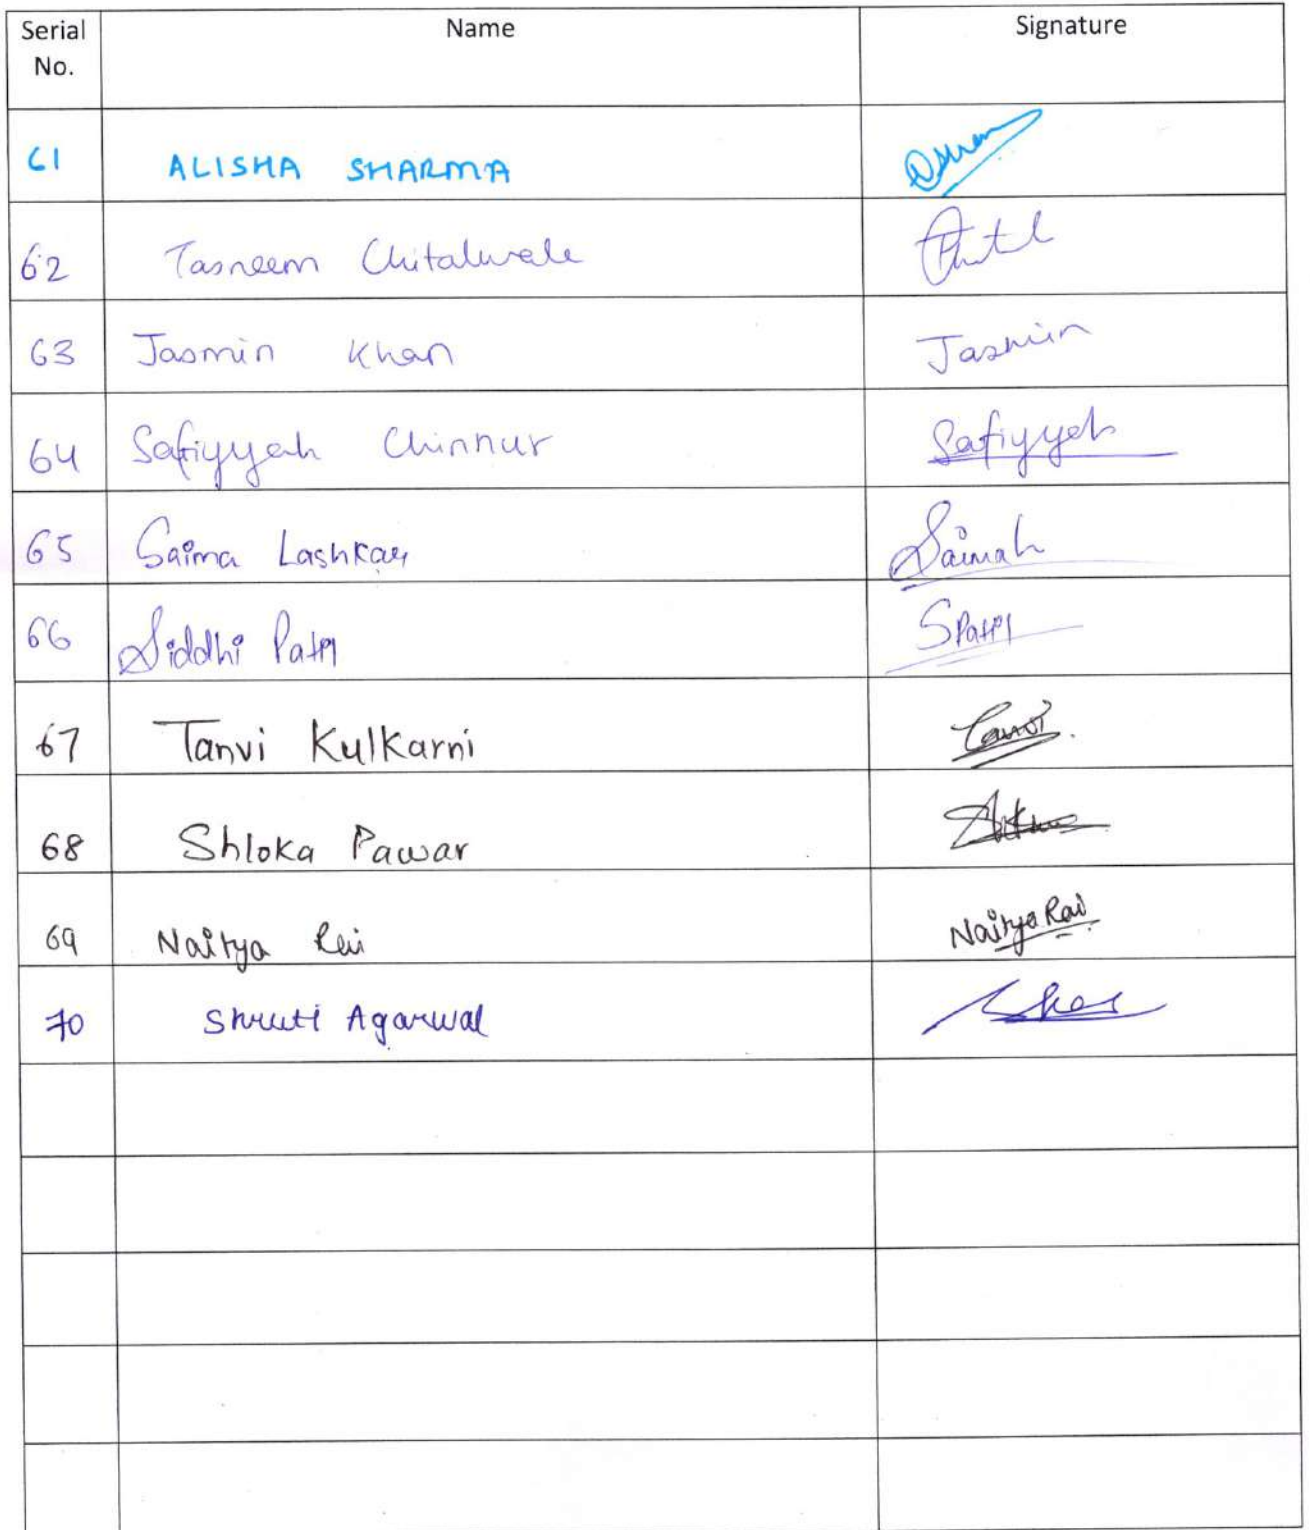 Serial No. Name Signature
61 ALISHA SHARMA
62 Tasneem Chitalwala
63 Jasmin Khan Jasmin
64 Safiyyah Chinnur Safiyyah
65 Saima Lashkar Saimah
66 Siddhi Patil SPatil
67 Tanvi Kulkarni Tanvi
68 Shloka Pawar
69 Naitya Rai Naitya Rai
70 Shruti Agarwal